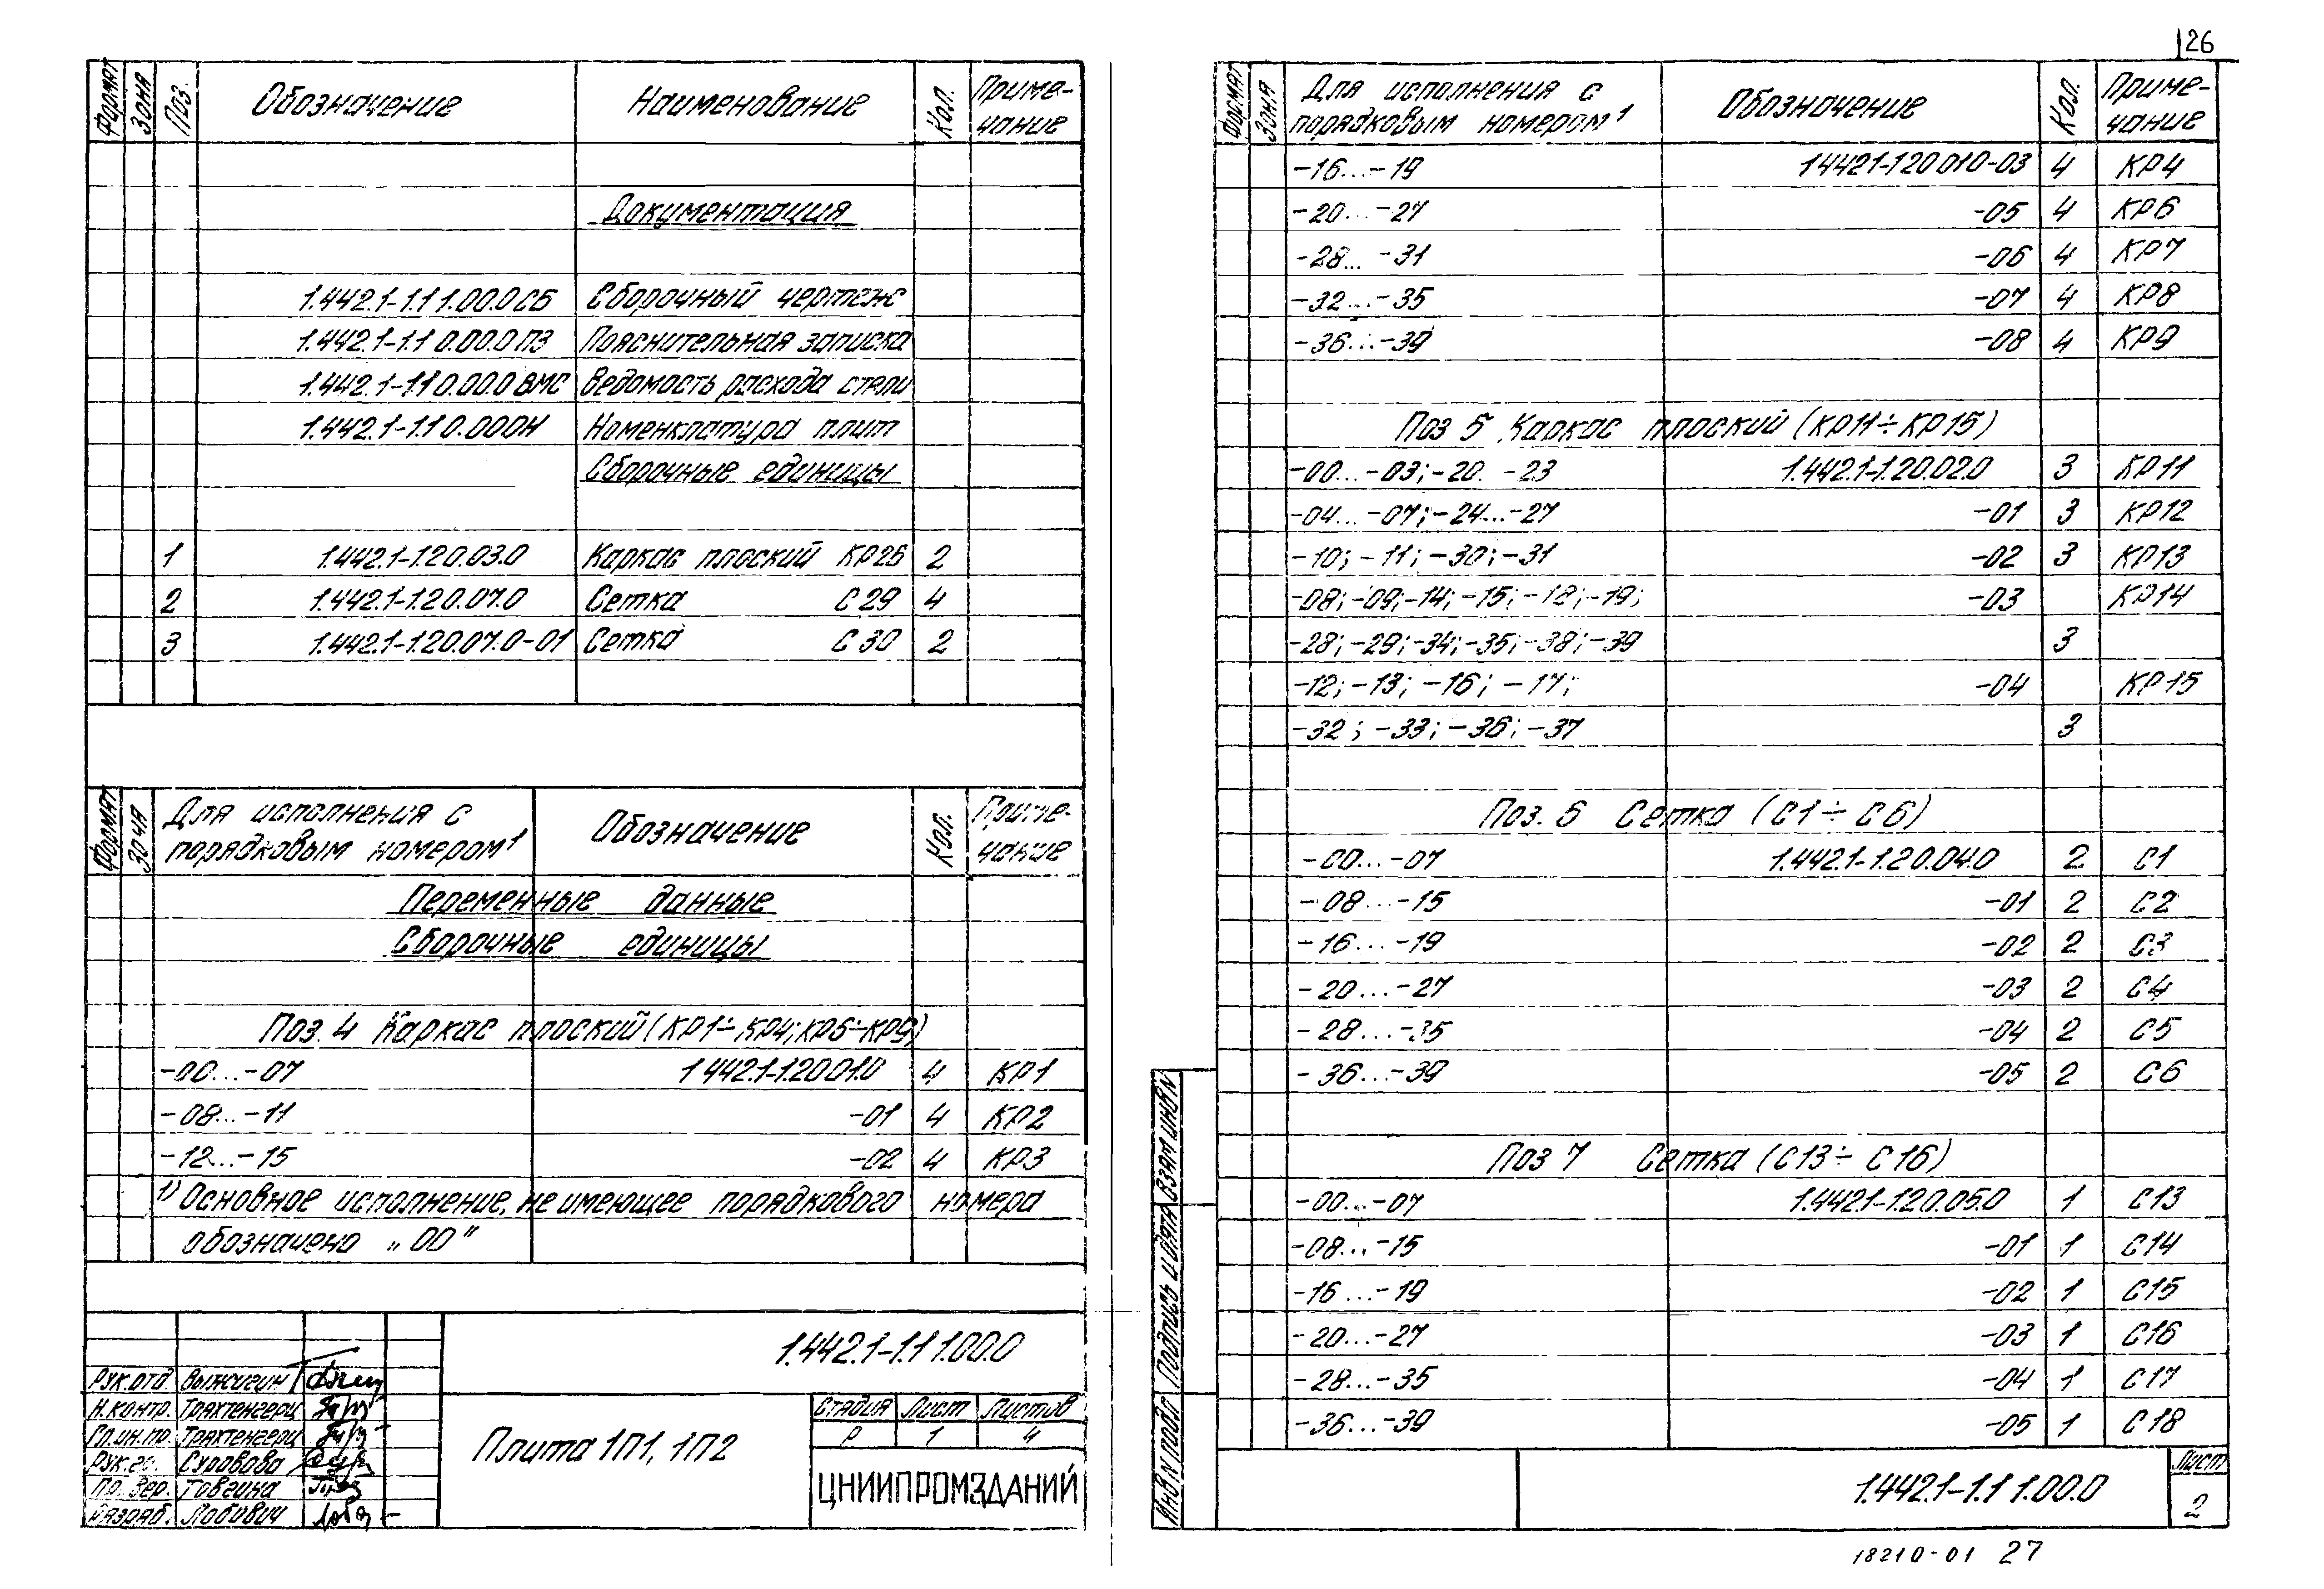 26
Формат Зона Поз. Обозначение Наименование Кол. Приме-
чание
Документация
1.442.1-1.1 1.00.0 СБ Сборочный чертеж
1.442.1-1.1 0.00.0 ПЗ Пояснительная записка
1.442.1-1.1 0.00.0 ВМС Ведомость расхода стали
1.442.1-1.1 0.00.0Н Номенклатура плит
Сборочные единицы
1 1.442.1-1.20.03.0 Каркас плоский КР26 2
2 1.442.1-1.20.07.0 Сетка С29 4
3 1.442.1-1.20.07.0-01 Сетка С30 2
Формат Зона Для исполнения с
порядковым номером¹ Обозначение Кол. Приме-
чание
Переменные данные
Сборочные единицы
Поз. 4 Каркас плоский (КР1÷КР4; КР6÷КР9)
-00...-07 1.442.1-1.20.01.0 4 КР1
-08...-11 -01 4 КР2
-12...-15 -02 4 КР3
1) Основное исполнение, не имеющее порядкового номера
обозначено „00"
1.442.1-1.1 1.00.0
Рук.отд. Выжигин
Н.контр. Трахтенгерц
Гл.ин.пр. Трахтенгерц
Рук.гр. Суровова
Пр. вер. Товгина
Разраб. Лобович
Плита 1П1, 1П2
Стадия Лист Листов
Р 1 4
ЦНИИПРОМЗДАНИЙ
Формат Зона Для исполнения с
порядковым номером¹ Обозначение Кол. Приме-
чание
-16...-19 1.442.1-1.20 01.0-03 4 КР4
-20...-27 -05 4 КР6
-28...-31 -06 4 КР7
-32...-35 -07 4 КР8
-36...-39 -08 4 КР9
Поз 5 Каркас плоский (КР11÷КР15)
-00...-03; -20. -23 1.442.1-1.20.02.0 3 КР11
-04...-07; -24...-27 -01 3 КР12
-10; -11; -30; -31 -02 3 КР13
-08; -09; -14; -15; -18; -19; -03 КР14
-28; -29; -34; -35; -38; -39 3
-12; -13; -16; -17; -04 КР15
-32; -33; -36; -37 3
Поз. 6 Сетка (С1÷С6)
-00...-07 1.442.1-1.20.04.0 2 С1
-08...-15 -01 2 С2
-16...-19 -02 2 С3
-20...-27 -03 2 С4
-28...-35 -04 2 С5
-36...-39 -05 2 С6
Поз 7 Сетка (С13÷С16)
-00...-07 1.442.1-1.20.05.0 1 С13
-08...-15 -01 1 С14
-16...-19 -02 1 С15
-20...-27 -03 1 С16
-28...-35 -04 1 С17
-36...-39 -05 1 С18
Взам инв N
Подпись и дата
Инв N подл
1.442.1-1.1 1.00.0
Лист
2
18210-01 27